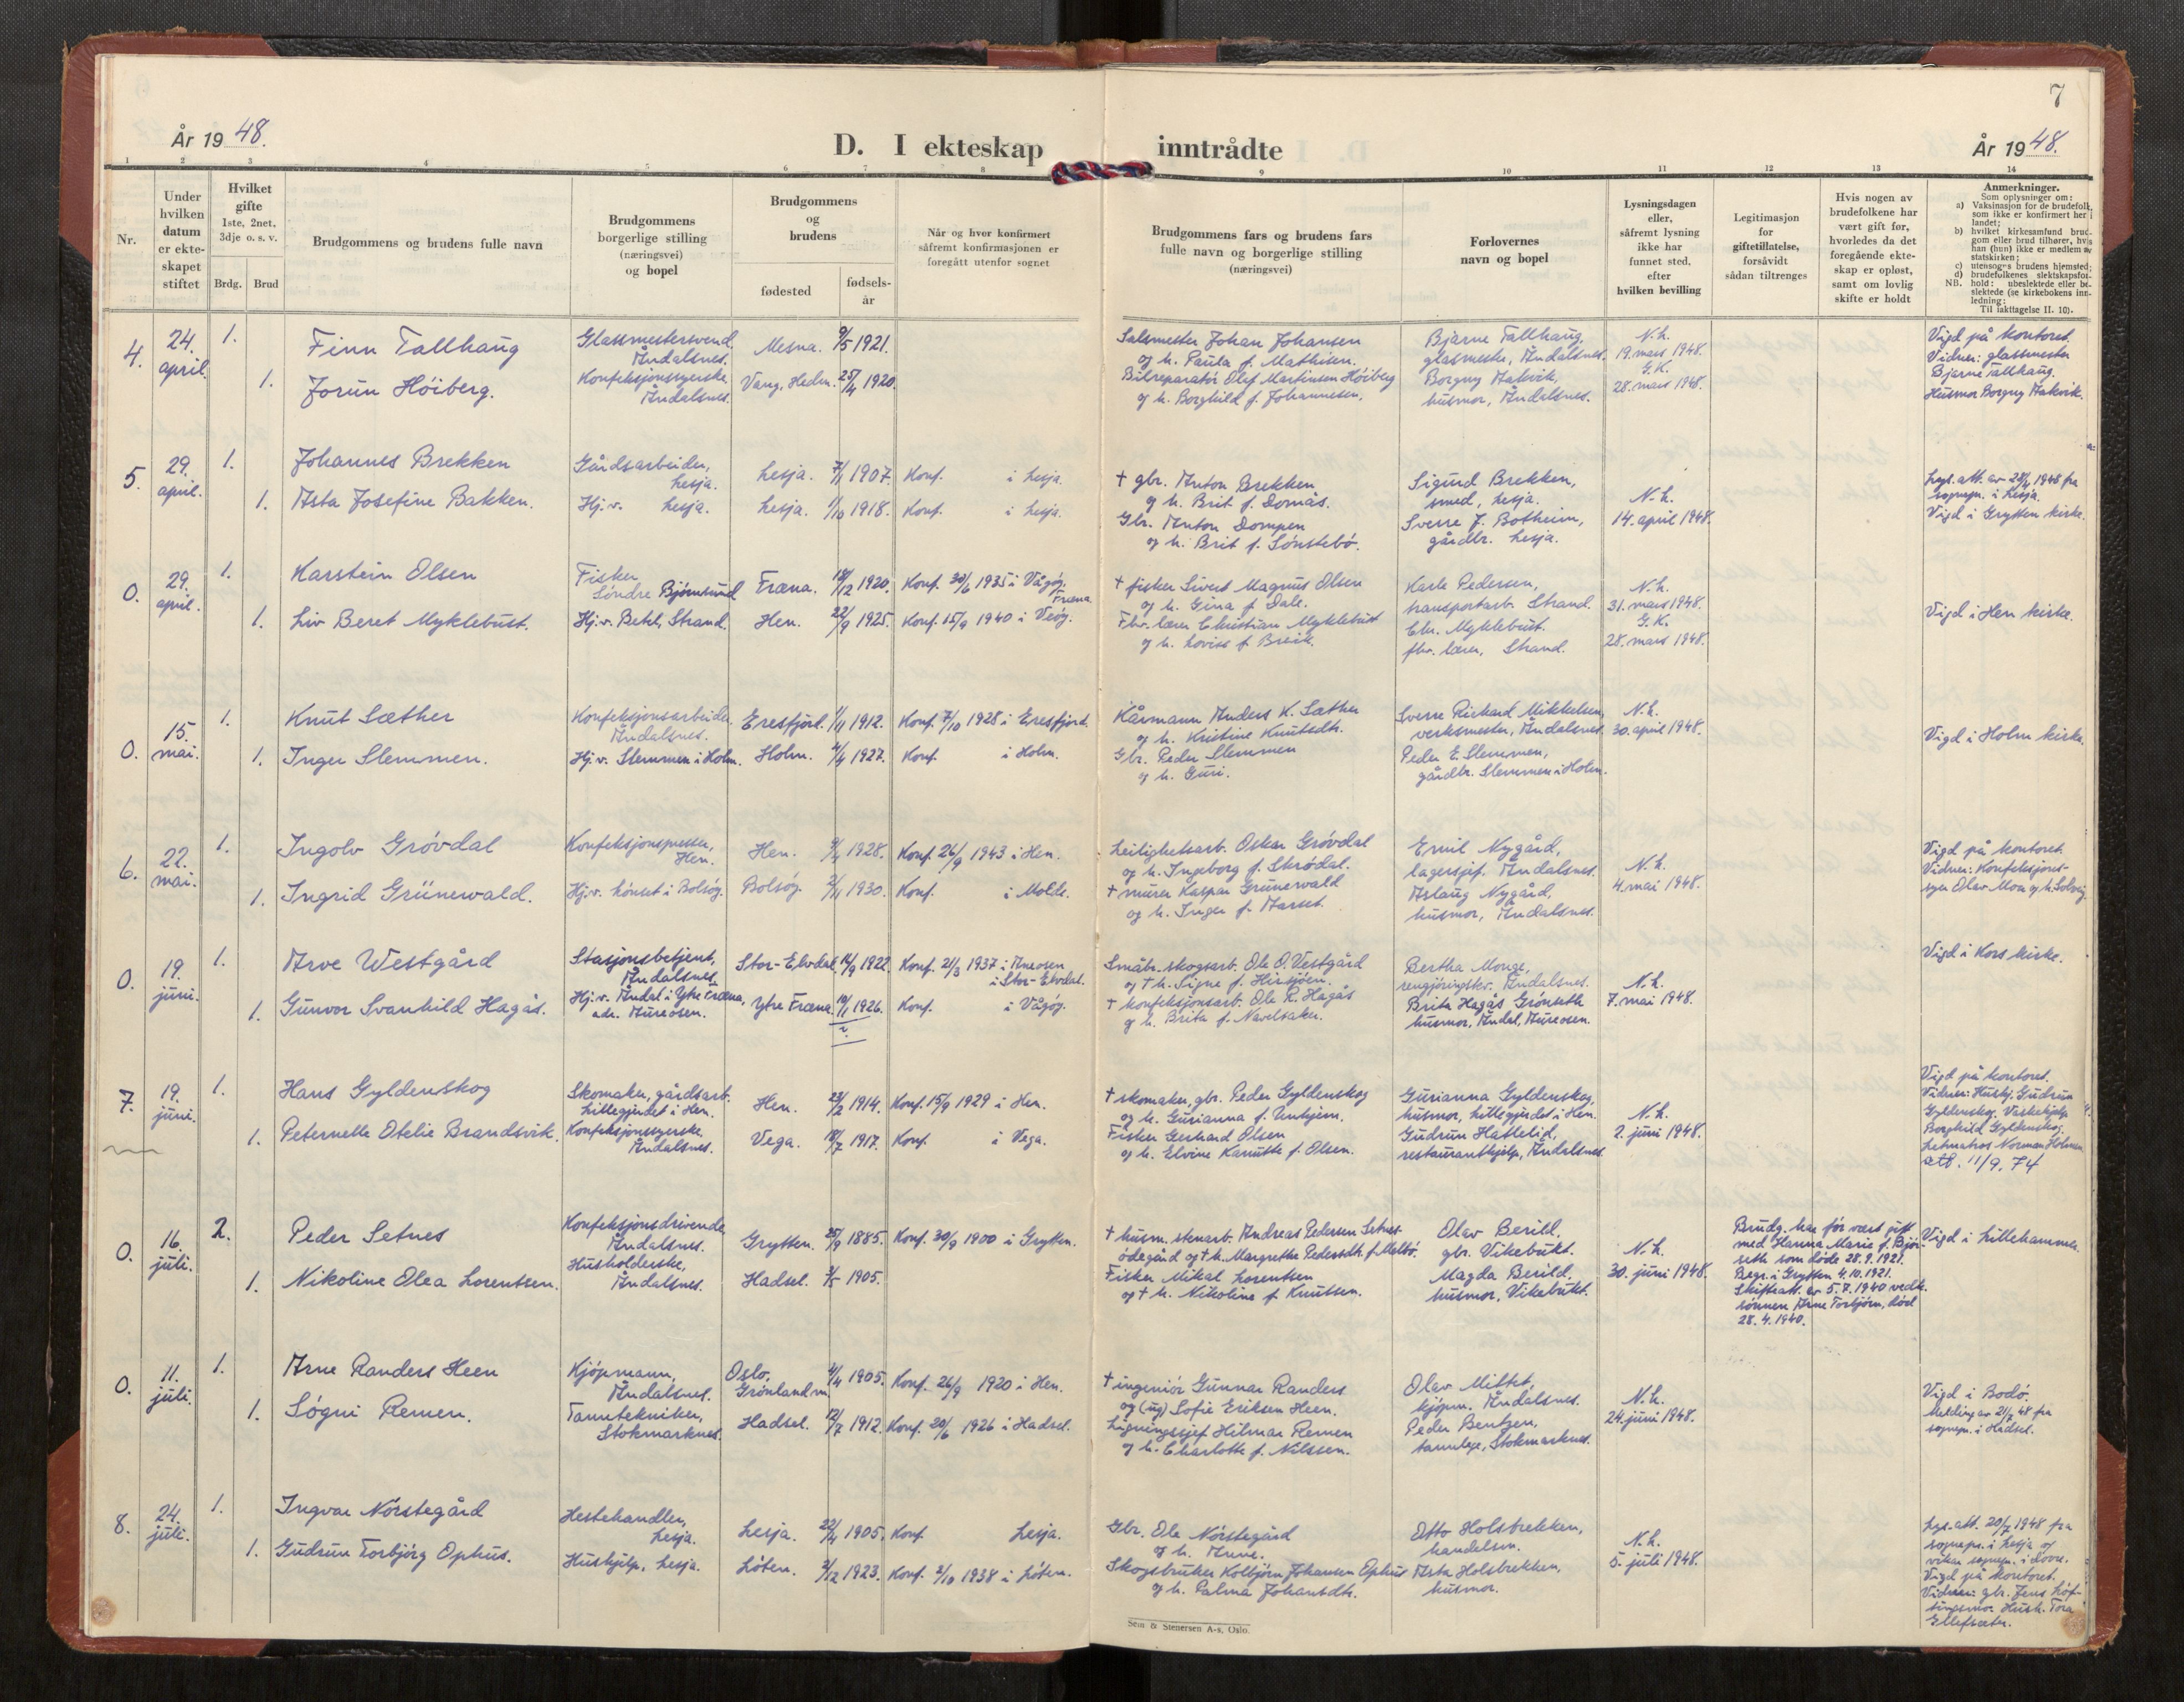 7
År 1948.
D. I ekteskap inntrådte
År 1948.
1 2 3 4 5 6 7 8 9 10 11 12 13 14
Nr.
Under hvilken datum er ekteskapet stiftet
Hvilket gifte
1ste, 2net, 3dje o. s. v.
Brdg. Brud
Brudgommens og brudens fulle navn
Brudgommens borgerlige stilling (næringsvei) og bopel
Brudgommens og brudens
fødested
fødselsår
Når og hvor konfirmert såfremt konfirmasjonen er foregått utenfor sognet
Brudgommens fars og brudens fars fulle navn og borgerlige stilling (næringsvei)
Forlovernes navn og bopel
Lysningsdagen eller, såfremt lysning ikke har funnet sted, efter hvilken bevilling
Legitimasjon for giftetillatelse, forsåvidt sådan tiltrenges
Hvis nogen av brudefolkene har vært gift før, hvorledes da det foregående ekteskap er opløst, samt om lovlig skifte er holdt
Anmerkninger.
Som oplysninger om:
a) Vaksinasjon for de brudefolk, som ikke er konfirmert her i landet;
b) hvilket kirkesamfund brudgom eller brud tilhører, hvis han (hun) ikke er medlem av statskirken;
c) utensogns brudens hjemsted;
d) brudefolkenes slektskapsforhold: ubeslektede eller beslektede (se kirkebokens innledning;
NB.
Til iakttagelse II. 10).
4. 24. april. 1. Finn Tallhaug
Glassmestersvend, Åndalsnes.
Mesna. 9/5 1921.
Salemester Johan Johansen
og h. Paula f. Mathisen.
Bjarne Tallhaug,
glasmester, Åndalsnes.
N.h.
19. mars 1948.
G.K.
28. mars 1948.
Vigd på kontoret.
Vidner: glassmester
Bjarne Tallhaug.
Husmor Borgny Aakvik.
1. Jorun Höiberg.
Konfeksjonssyerske, Åndalsnes.
Vang, Hedm. 25/4 1920.
Bilreparatör Olef Martinsen Höiberg
og h. Borghild f. Johannesen.
Borgny Aakvik,
husmor, Åndalsnes.
5. 29. april. 1. Johannes Brekken
Gårdsarbeider, Lesja.
Lesja. 7/1 1907. Konf. i Lesja.
† gbr. Anton Brekken
og h. Brit f. Domås.
Sigurd Brekken,
smed, Lesja.
N.h.
14. april 1948.
Legt. att. av 28/4 1948 fra
sognepr. i Lesja.
Vigd i Grytten kirke.
1. Asta Josefine Bakken.
Hj.v. Lesja.
Lesja. 1/10 1918. Konf. i Lesja.
Gbr. Anton Dompen
og h. Brit f. Sönstebö.
Sverre J. Botheim,
gårdbr. Lesja.
0. 29. april. 1. Karstein Olsen
Fisker, Söndre Björnsund
Fræna. 18/12 1920. Konf. 30/6 1935 i Vågöy, Fræna
† fisker Sivert Magnus Olsen
og h. Gina f. Dale.
Karle Pedersen,
transportarb. Strand.
N.h.
31. mars 1948.
G.K.
28. mars 1948.
Vigd i Hen kirke.
1. Liv Beret Myklebust.
Hj.v. Betel, Strand.
Hen. 22/9 1925. Konf. 15/9 1940 i Veöy.
Fhv. lærer Christian Myklebust
og h. Lovise f. Breik.
Chr. Myklebust.
fhv. lærer, Strand.
0. 15. mai. 1. Knut Sæther
Konfeksjonsarbeider, Åndalsnes.
Eresfjord. 1/11 1912. Konf. 7/10 1928 i Eresfjord.
Kårmann Anders K. Sæther
og h. Kristine Knutsdtr.
Sverre Rickard Mikkelsen,
verksmester, Åndalsnes.
N.h.
30. april 1948.
Vigd i Holm kirke.
1. Inger Slemmen.
Hj.v. Slemmen i Holm.
Holm. 4/4 1927. Konf. i Holm.
Gbr. Peder Slemmen
og h. Guri.
Peder E. Slemmen,
gårdbr. Slemmen i Holm.
6. 22. mai. 1. Ingolv Grövdal
Konfeksjonspresser, Hen.
Hen. 1928. Konf. 26/9 1943 i Hen.
Leilighetsarb. Oskar Grövdal
og h. Ingeborg f. Skrödal.
Emil Nygård,
lagersjef. Åndalsnes.
N.h.
4. mai 1948.
Vigd på kontoret.
Vidner: Konfeksjons-
syer Olav Moa og h. Solveig.
1. Ingrid Grünewald.
Hj.v. Lönset i Bolsöy.
Bolsöy. 2/11 1930. Konf. i Molde.
† murer Kaspar Grünewald
og h. Inger f. Aarset.
Aslaug Nygård,
husmor, Åndalsnes.
0. 19. juni. 1. Arve Westgård
Stasjonsbetjent, Åndalsnes.
Stor-Elvdal. 14/9 1922. Konf. 21/3 1937 i Aneosen i Stor-Elvdal.
Småbr. skogsarb. Ole O. Vestgård
og † h. Signe f. Hirsjöen.
Bertha Monge,
rengjöringskv. Åndalsnes.
N.h.
7. mai 1948.
Vigd i Kors kirke.
1. Gunvor Svanhild Hagås.
Hj.v. Åndal i Ytre Fræna, adr. Aureosen.
Ytre Fræna. 10/1 1926. Konf. i Vågöy.
† konfeksjonsarb. Ole R. Hagås
og h. Brita f. Navelsaker.
Brita Hagås Grönseth
husmor, Åndal, Aureosen.
7. 19. juni. 1. Hans Gyldenskog
Skomaker, gårdsarb. Lillegjerdet i Hen.
Hen. 23/2 1914. Konf. 15/9 1929 i Hen.
† skomaker, gbr. Peder Gyldenskog
og h. Gurianna f. Unhjem.
Gurianna Gyldenskog,
husmor, Lillegjerdet i Hen.
N.h.
2. juni 1948.
Vigd på kontoret.
Vidner: Hushj. Gudrun
Gyldenskog. Vaskehjelp
Borghild Gyldenskog.
Letmatros Norman Holmen
att. 11/9. 74
1. Peternelle Otelie Brandsvik.
Konfeksjonssyerske, Åndalsnes.
Vega. 18/7 1917. Konf. i Vega.
Fisker Gerhard Olsen
og h. Elvine Kanutte f. Olsen.
Gudrun Hattelid,
restauranthjelp, Åndalsnes.
0. 16. juli. 2. Peder Setnes
Konfeksjonsdrivende, Åndalsnes.
Grytten. 25/9 1885. Konf. 30/9 1900 i Grytten.
† husm. stenarb. Andreas Pedersen Setnes-
ödegård og † h. Margrethe Pedersdtr. f. Meltö.
Olav Berild,
gbr. Vikebukt.
N.h.
30. juni 1948.
Brudg. har för vært gift
med Hanna Marie f. Björ-
seth som döde 28.9.1921.
Begr. i Grytten 4.10.1921.
Skifteatt. av 5.7.1940 vedk.
sönnen Arne Torbjörn, död
28.4.1940.
Vigd i Lillehammer.
1. Nikoline Olea Lorentsen.
Husholderske, Åndalsnes.
Hadsel. 3/5 1905.
Fisker Mikal Lorentsen
og † h. Nikoline f. Knutsen.
Magda Berild,
husmor, Vikebukt.
0. 11. juli. 1. Arne Randers Heen
Kjöpmann, Åndalsnes.
Oslo, Grönland m. 4/4 1905. Konf. 26/9 1920 i Hen.
† ingeniör Gunnar Randers
og (ug) Sofie Eriksen Heen.
Olav Mittet,
kjöpm. Åndalsnes.
N.h.
24. juni 1948.
Vigd i Bodö.
Melding av 21/7 48 fra
sognepr. i Hadsel.
1. Sögni Remen.
Tanntekniker, Stokmarknes.
Hadsel. 12/7 1912. Konf. 20/6 1926 i Hadsel.
Ligningssjef Hilmar Remen
og h. Charlotte f. Nilssen.
Peder Bentzen,
tannlege, Stokmarknes.
8. 24. juli. 1. Ingvar Nörstegård
Hestehandler, Lesja.
Lesja. 22/4 1905. Konf. Lesja.
Gbr. Ole Nörstegård
og h. Anne.
Otto Holsbrekken,
handelsm.
N.h.
5. juli 1948.
Legt. att. 20/7 1948 fra
sognepr. i Lesja og
vikar sognepr. i Dovre.
Vigd på kontoret.
Vidner: gbr. Jens Löf-
tingsmo. Hush. Tora
Ellefsæter.
1. Gudrun Torbjörg Ophus.
Hushjelp, Lesja.
Löten. 2/12 1923. Konf. 2/10 1938 i Löten.
Skogsbruker Kolbjörn Johansen Ophus
og h. Palma Johansdtr.
Asta Holsbrekken,
husmor.
Sem & Stenersen A-s, Oslo.